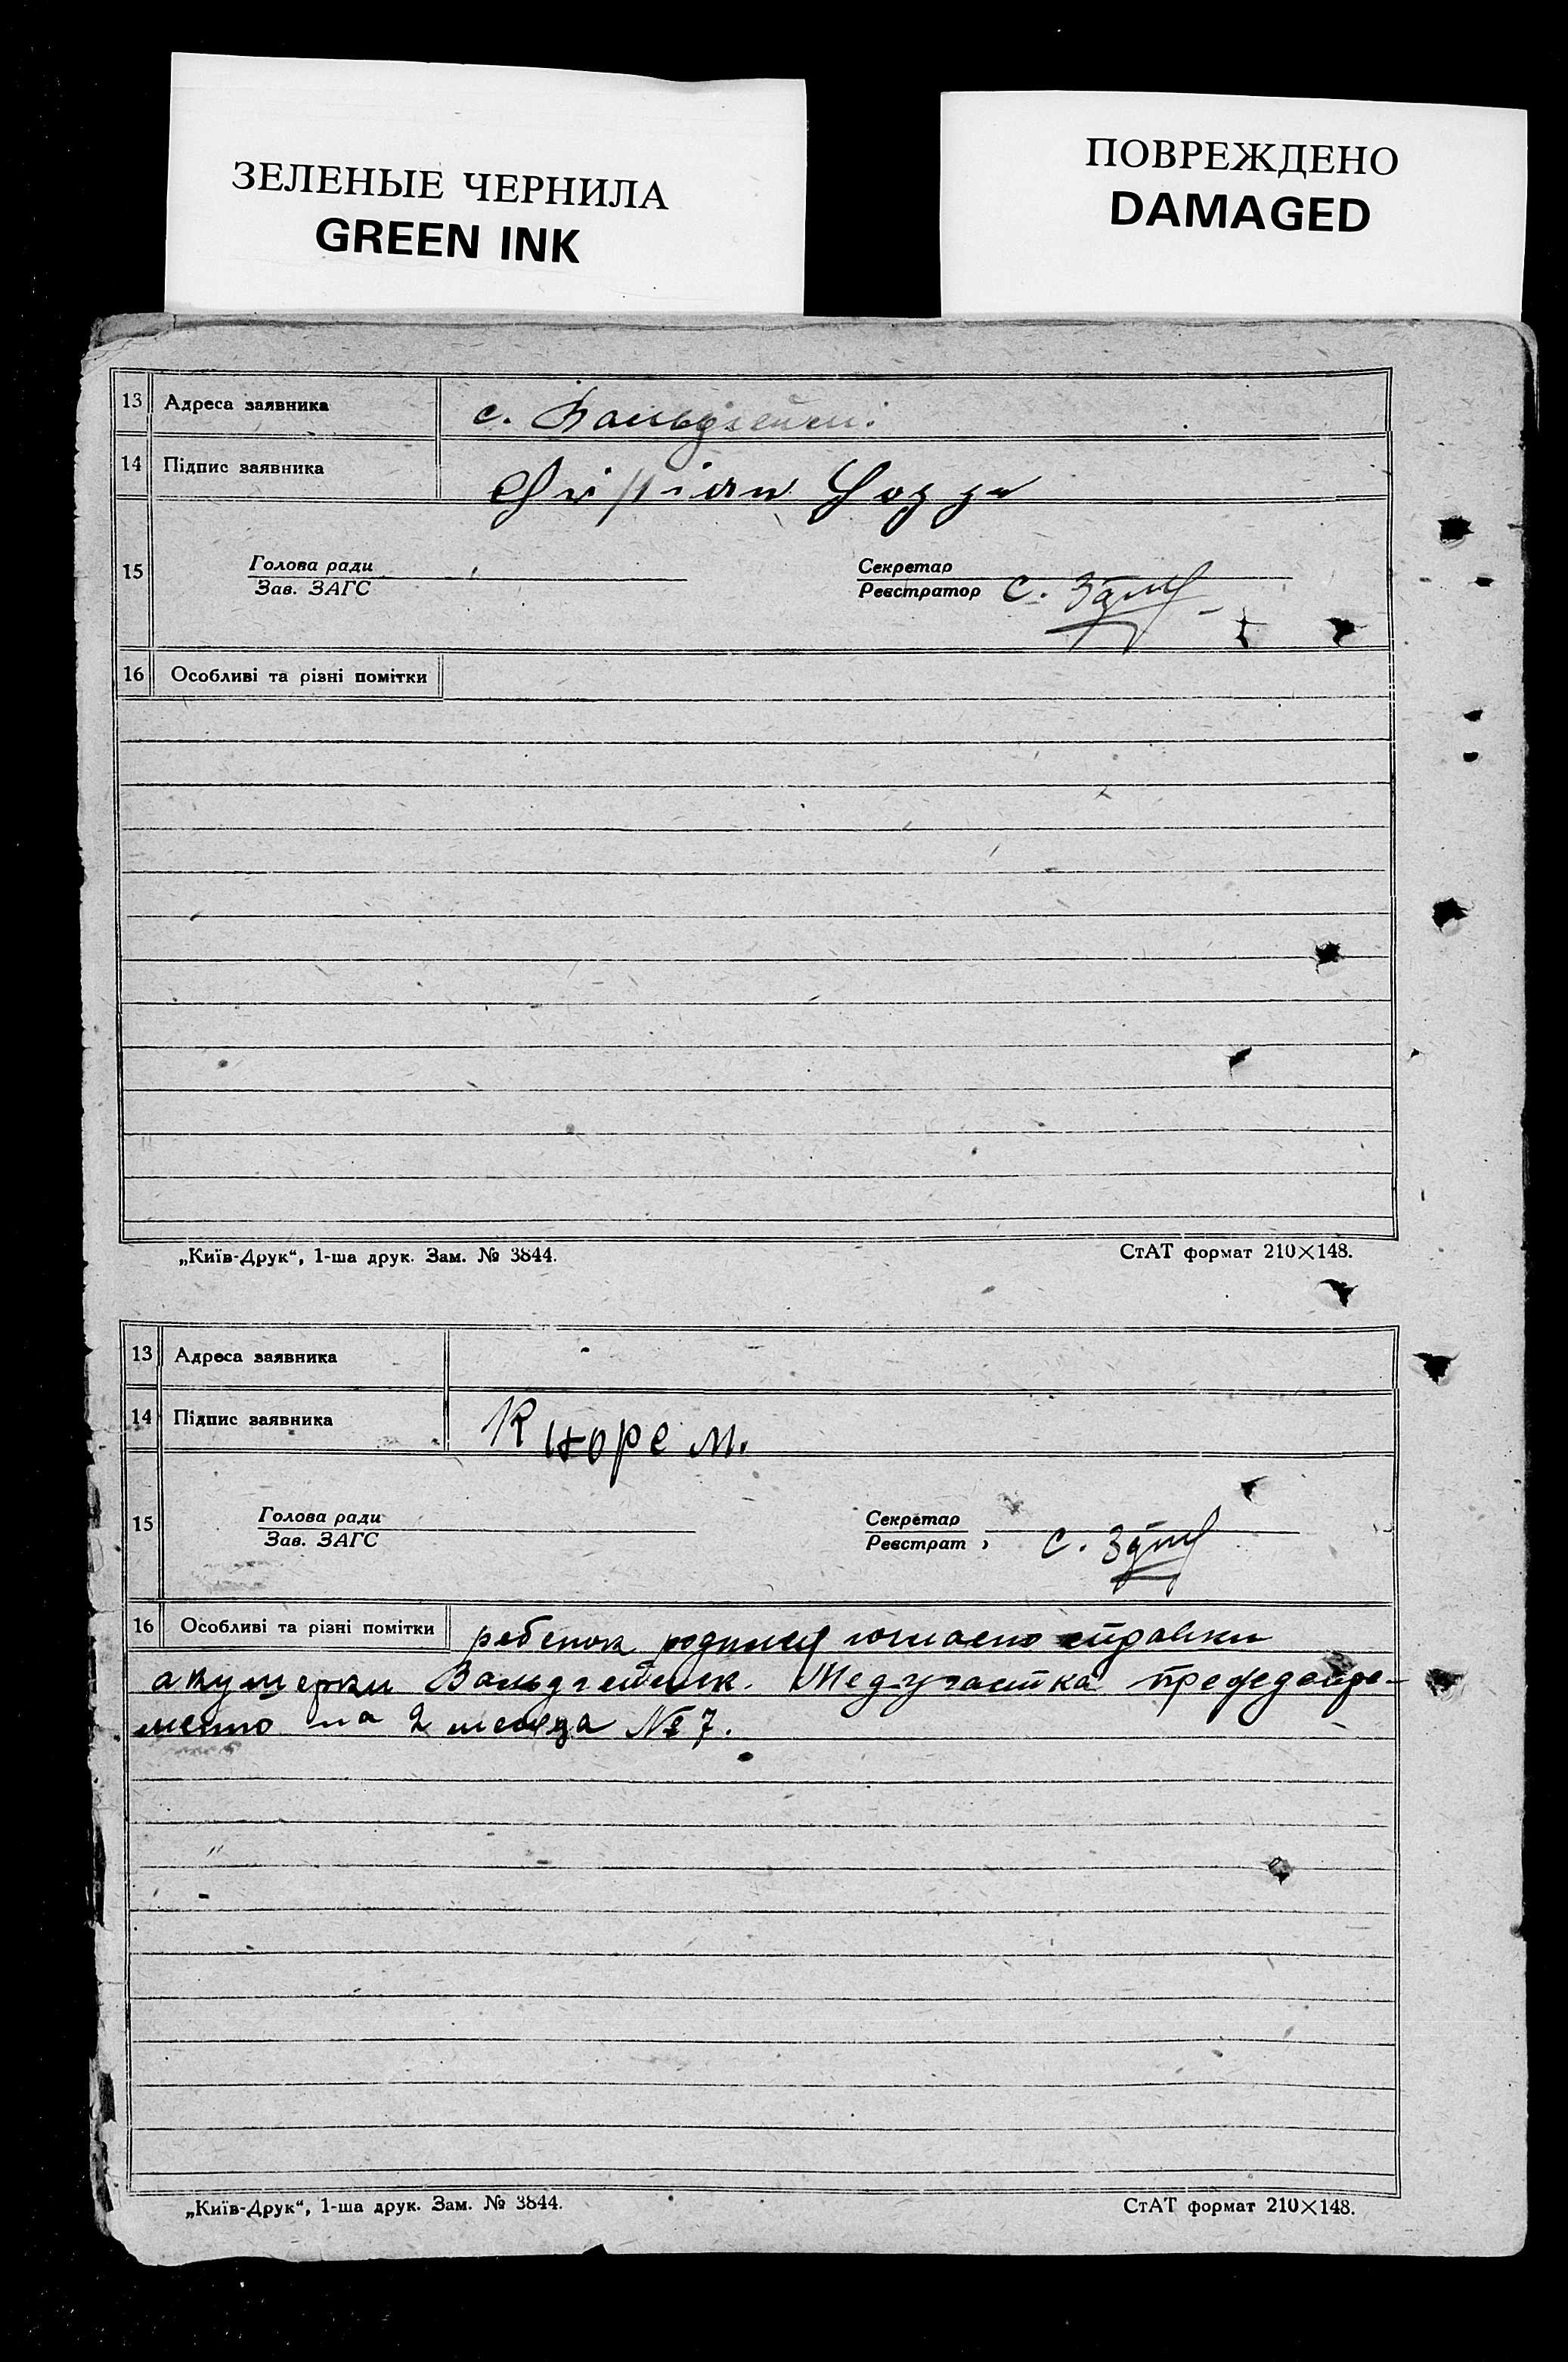 ЗЕЛЕНЫЕ ЧЕРНИЛА
GREEN INK
ПОВРЕЖДЕНО
DAMAGED
13 Адреса заявника с. Вальдгейм.
14 Підпис заявника Christian
15 Голова ради Секретар
Зав. ЗАГС Реєстратор С.
16 Особливі та різні помітки
„Київ-Друк“, 1-ша друк. Зам. № 3844. СтАТ формат 210×148.
13 Адреса заявника
14 Підпис заявника Кнорре м.
15 Голова ради Секретар
Зав. ЗАГС Реєстрат С.
16 Особливі та різні помітки ребенок родился согласно справки
акушерки Вальдгеймск. Медучастка преждевре-
менно на 2 месяца № 7.
„Київ-Друк“, 1-ша друк. Зам. № 3844. СтАТ формат 210×148.